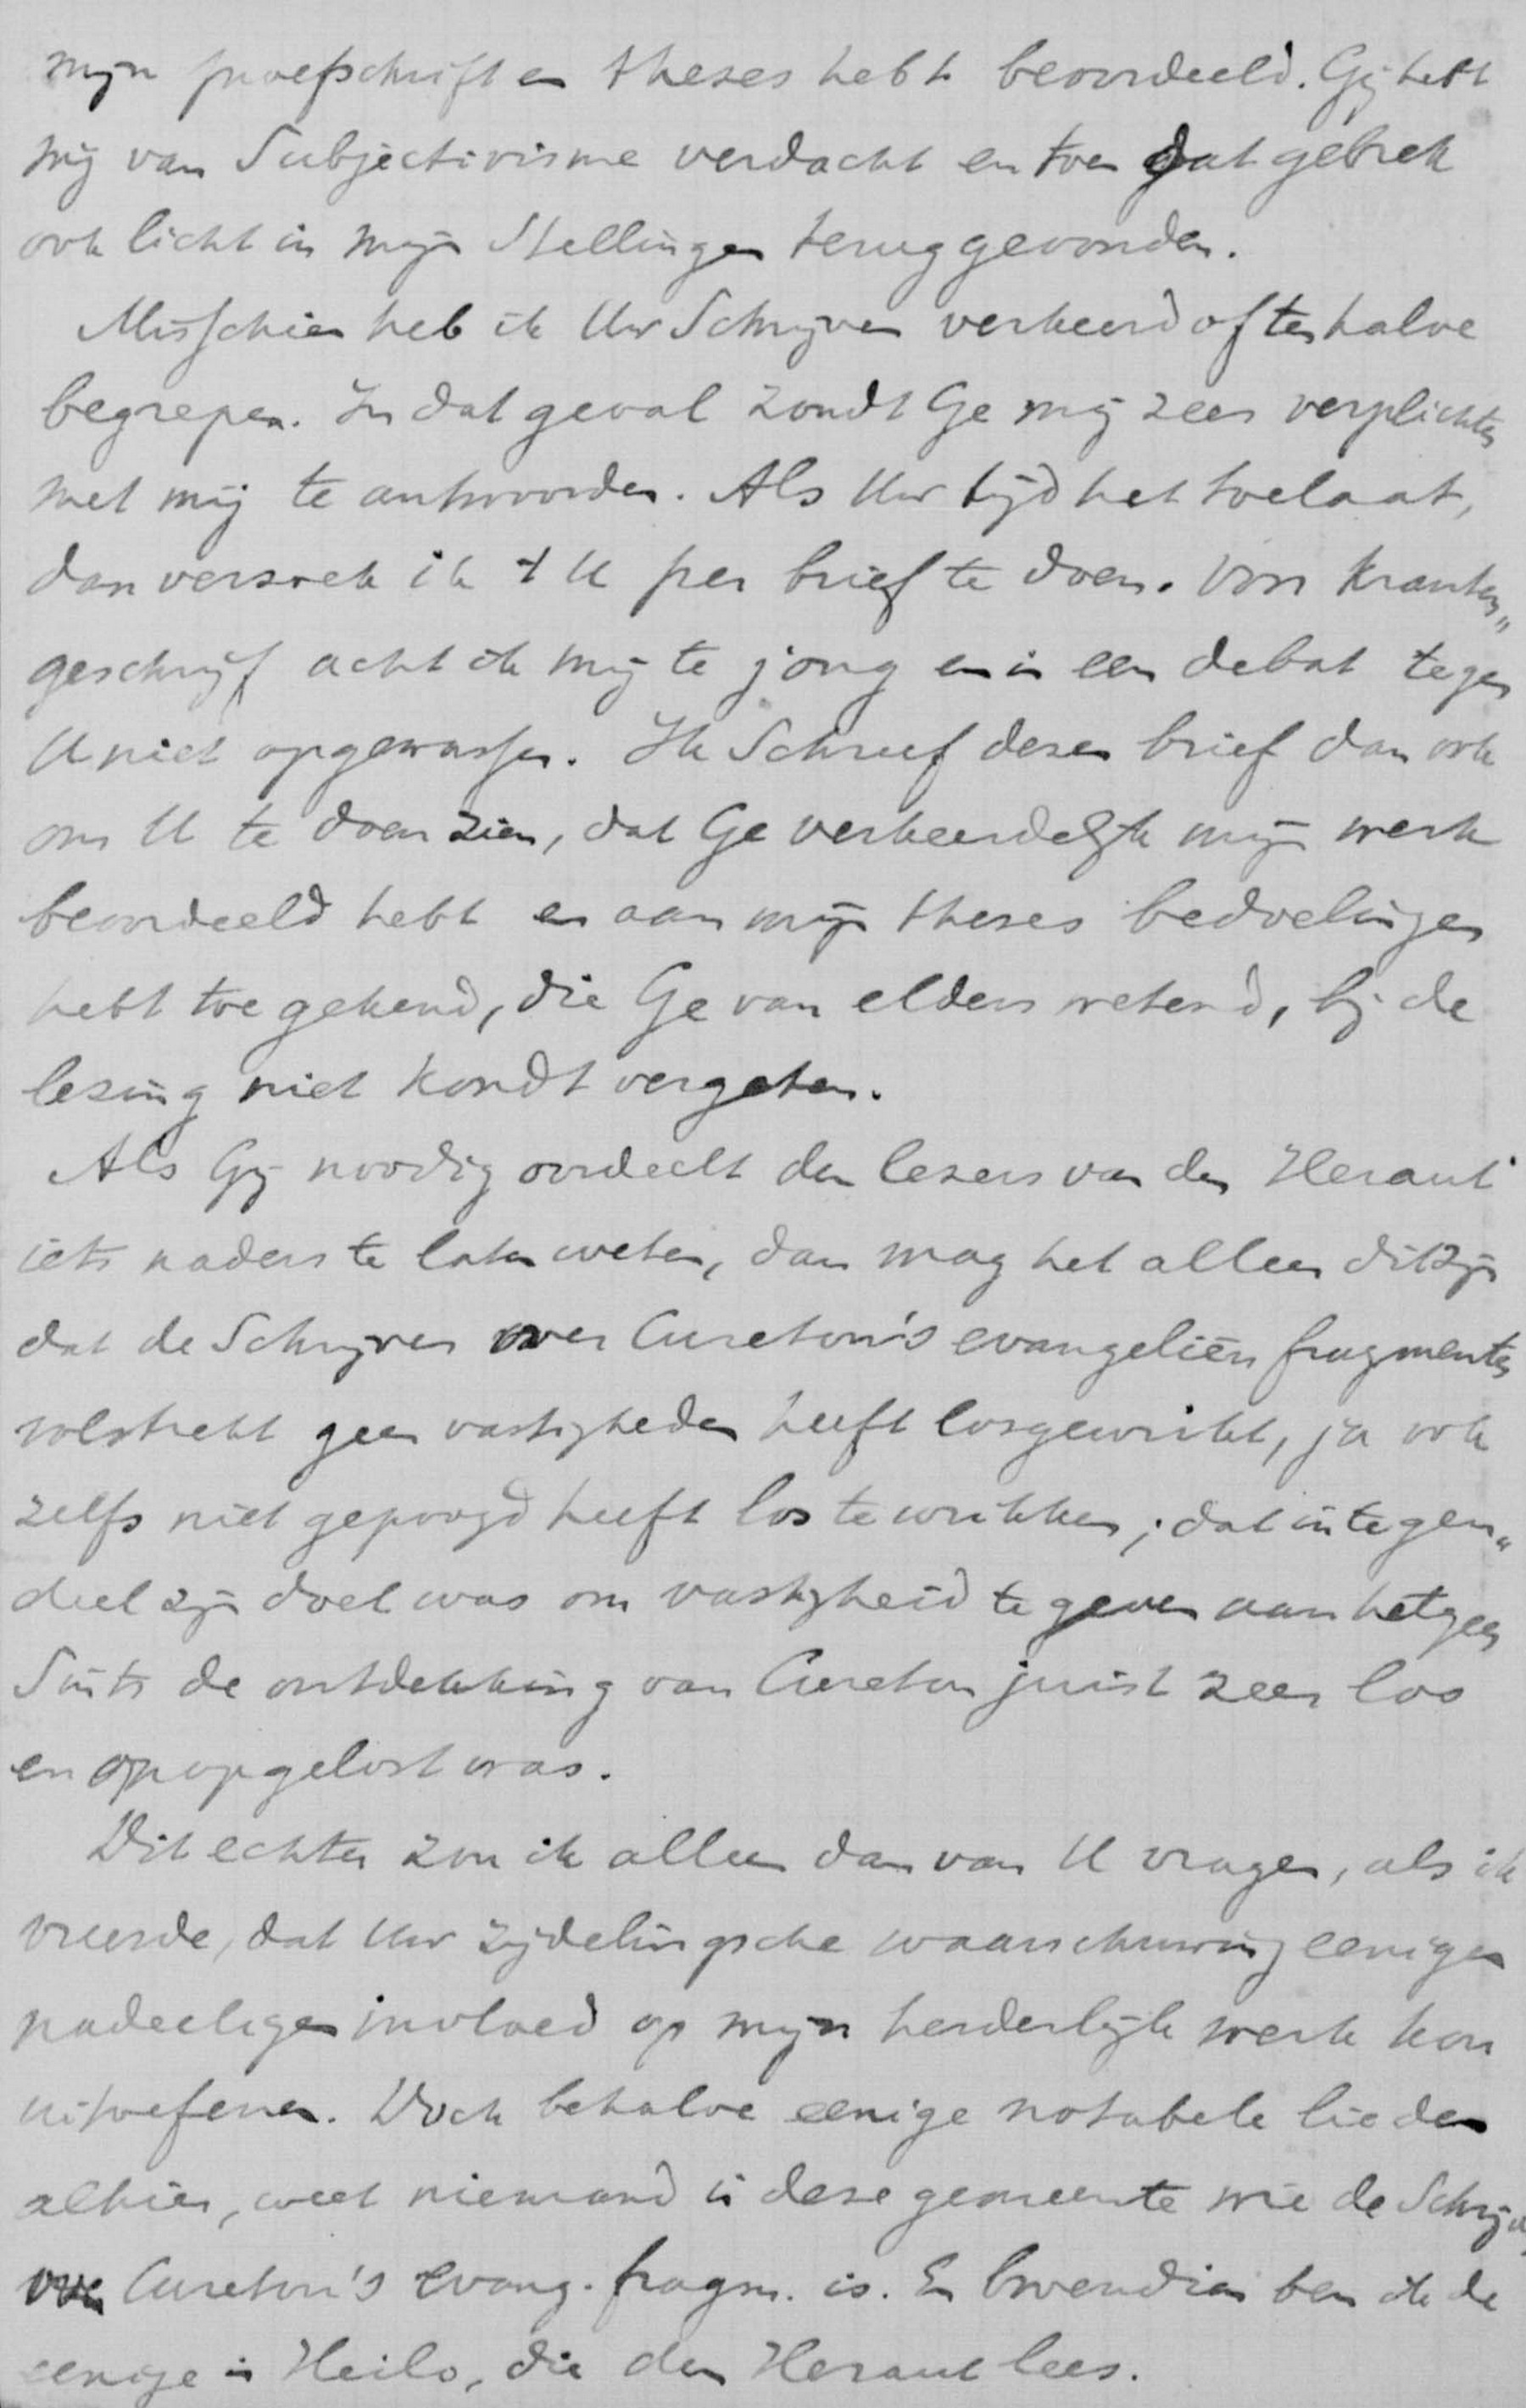 mijn proefschrift en theses hebt beoordeeld. Gij hebt
mij van Subjectivisme verdacht en toen dat gebrek
ook licht in mijn Stellingen teruggevonden.
Misschien heb ik Uw Schrijven verkeerd of ten halve
begrepen. In dat geval zoudt Ge mij zeer verplichten
met mij te antwoorden. Als Uw tijd het toelaat,
dan verzoek ik 't U per brief te doen. Voor kranten„
geschrijf acht ik mij te jong en in een debat tegen
U niet opgewassen. Ik Schreef dezen brief dan ook
om U te doen zien, dat Ge verkeerdelijk mijn werk
beoordeeld hebt en aan mijn theses bedoelingen
hebt toegekend, die Ge van elders wetend, bij de
lezing niet kondt vergeten.
Als Gij noodig oordeelt den lezers van den Heraut
iets naders te laten weten, dan mag het alleen dit zijn
dat de Schrijver over Cureton's evangeliën fragmenten
volstrekt geen vastigheden heeft losgewrikt, ja ook
zelfs niet gepoogd heeft los te wrikken; dat integen„
deel zijn doel was om vastigheid te geven aan hetgeen
Sints de ontdekking van Cureton juist zeer los
en onopgelost was.
Dit echter zou ik alleen dan van U vragen, als ik
vreesde, dat Uw zijdelingsche waarschuwing eenigen
nadeeligen invloed op mijn herderlijk werk kon
uitoefenen. Doch behalve eenige notabele lieden
alhier, weet niemand in deze gemeente wie de Schrijver
over Cureton's evang. fragm. is. En bovendien ben ik de
eenige in Heilo, die den Heraut lees.